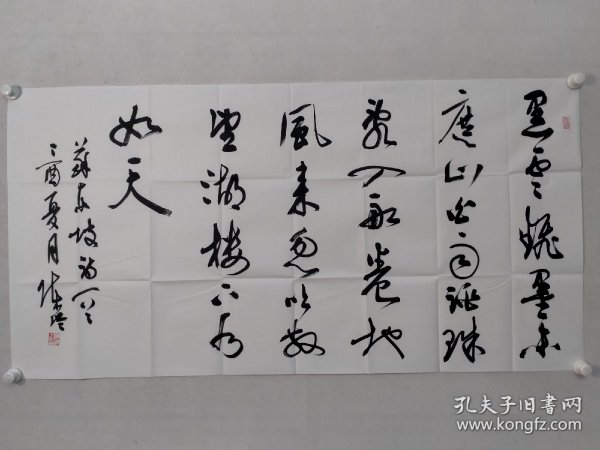 黑雲翻墨未
遮山白雨跳珠
亂入船卷地
風来忽吹散
望湖楼下水
如天
蘇东坡诗一首
丁酉夏月
孔夫子旧书网
www.kongfz.com